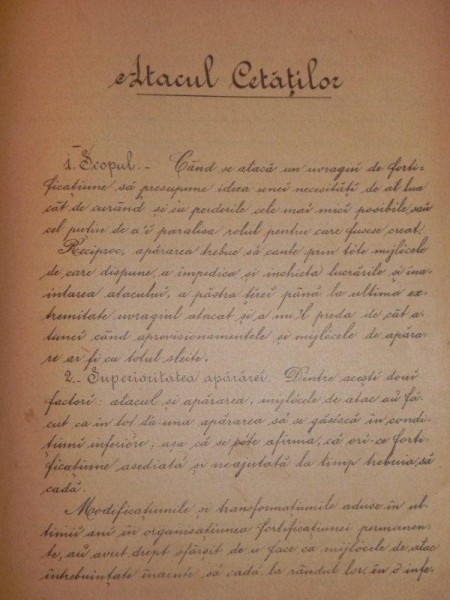 Atacul Cetăților
1. Scopul. - Când se atacă un uvragiu de forti-
ficațiune să presupune ideea unei necesități de al lua
cât de curând și cu perderile cele mai mici posibile, sau
cel puțin de a'i paralisa rolul pentru care fusese creat.
Reciproc, apărarea trebue să caute prin tóte mijlócele
de care dispune, a împedica și închieta lucrările și îna-
intarea atacului, a păstra până la ultima ex-
tremitate uvragiul atacat și a nu'l preda de cât a-
tunci când aprovisionamentele și mijlócele de apăra-
re ar fi cu totul sleite.
2. - Superioritatea apărărei. Dintre acești doui
factori: atacul și apărarea, mijlócele de atac aŭ fă-
cut ca in tot d'a una apărarea să se găsescă în condi-
țiuni inferióre; așa că se póte afirma, că ori-ce forti-
ficațiune asediată și neajutată la timp trebuia, să
cadă.
Modificațiunile și transformațiunile aduse în ul-
timii ani în organisațiunea fortificațiunei permanen-
te, aŭ avut drept sfârșit de a face ca mijlócele de atac
întrebuințate înainte să cadă la rândul lor în o infe-